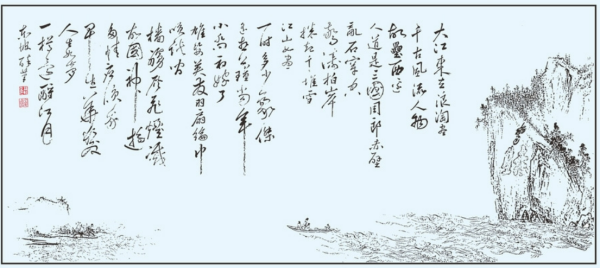 大江東去浪淘盡
千古風流人物
故壘西邊
人道是三國周郎赤壁
亂石穿空
驚濤拍岸
捲起千堆雪
江山如畫
一時多少豪傑
遙想公瑾當年
小喬初嫁了
雄姿英發羽扇綸巾
談笑間
檣櫓灰飛煙滅
故國神遊
多情應笑我
早生華髮
人生如夢
一樽還酹江月
東坡